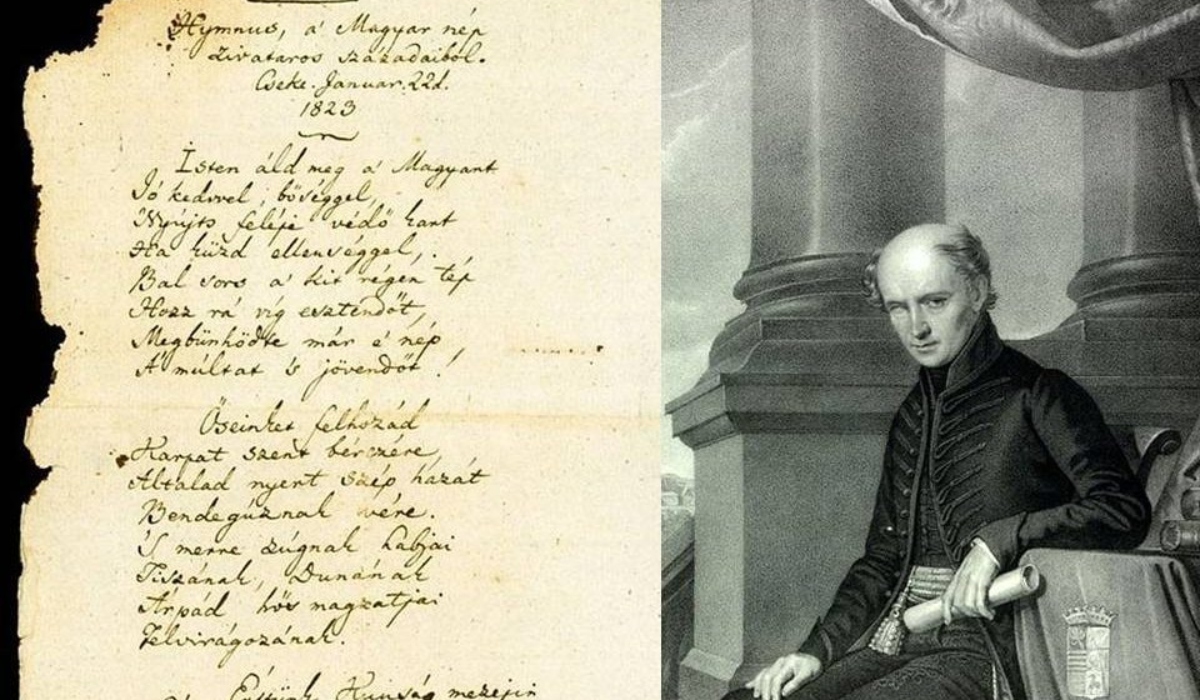 Hymnus, a' Magyar nép
zivataros századaiból.
Cseke. Januar. 22d.
1823
Isten áld meg a' Magyart
Jó kedvvel, bőséggel,
Nyújts feléje védő kart
Ha küzd ellenséggel,
Bal sors a' kit régen tép
Hozz rá víg esztendőt,
Megbünhödte már e' nép
A' múltat 's jövendőt!
Őseinket felhozád
Kárpát szent bérczére,
Általad nyert szép hazát
Bendegúznak vére.
'S merre zúgnak habjai
Tiszának, Dunának
Árpád hős magzatjai
Felvirágozának.
Értünk Kunság mezejin